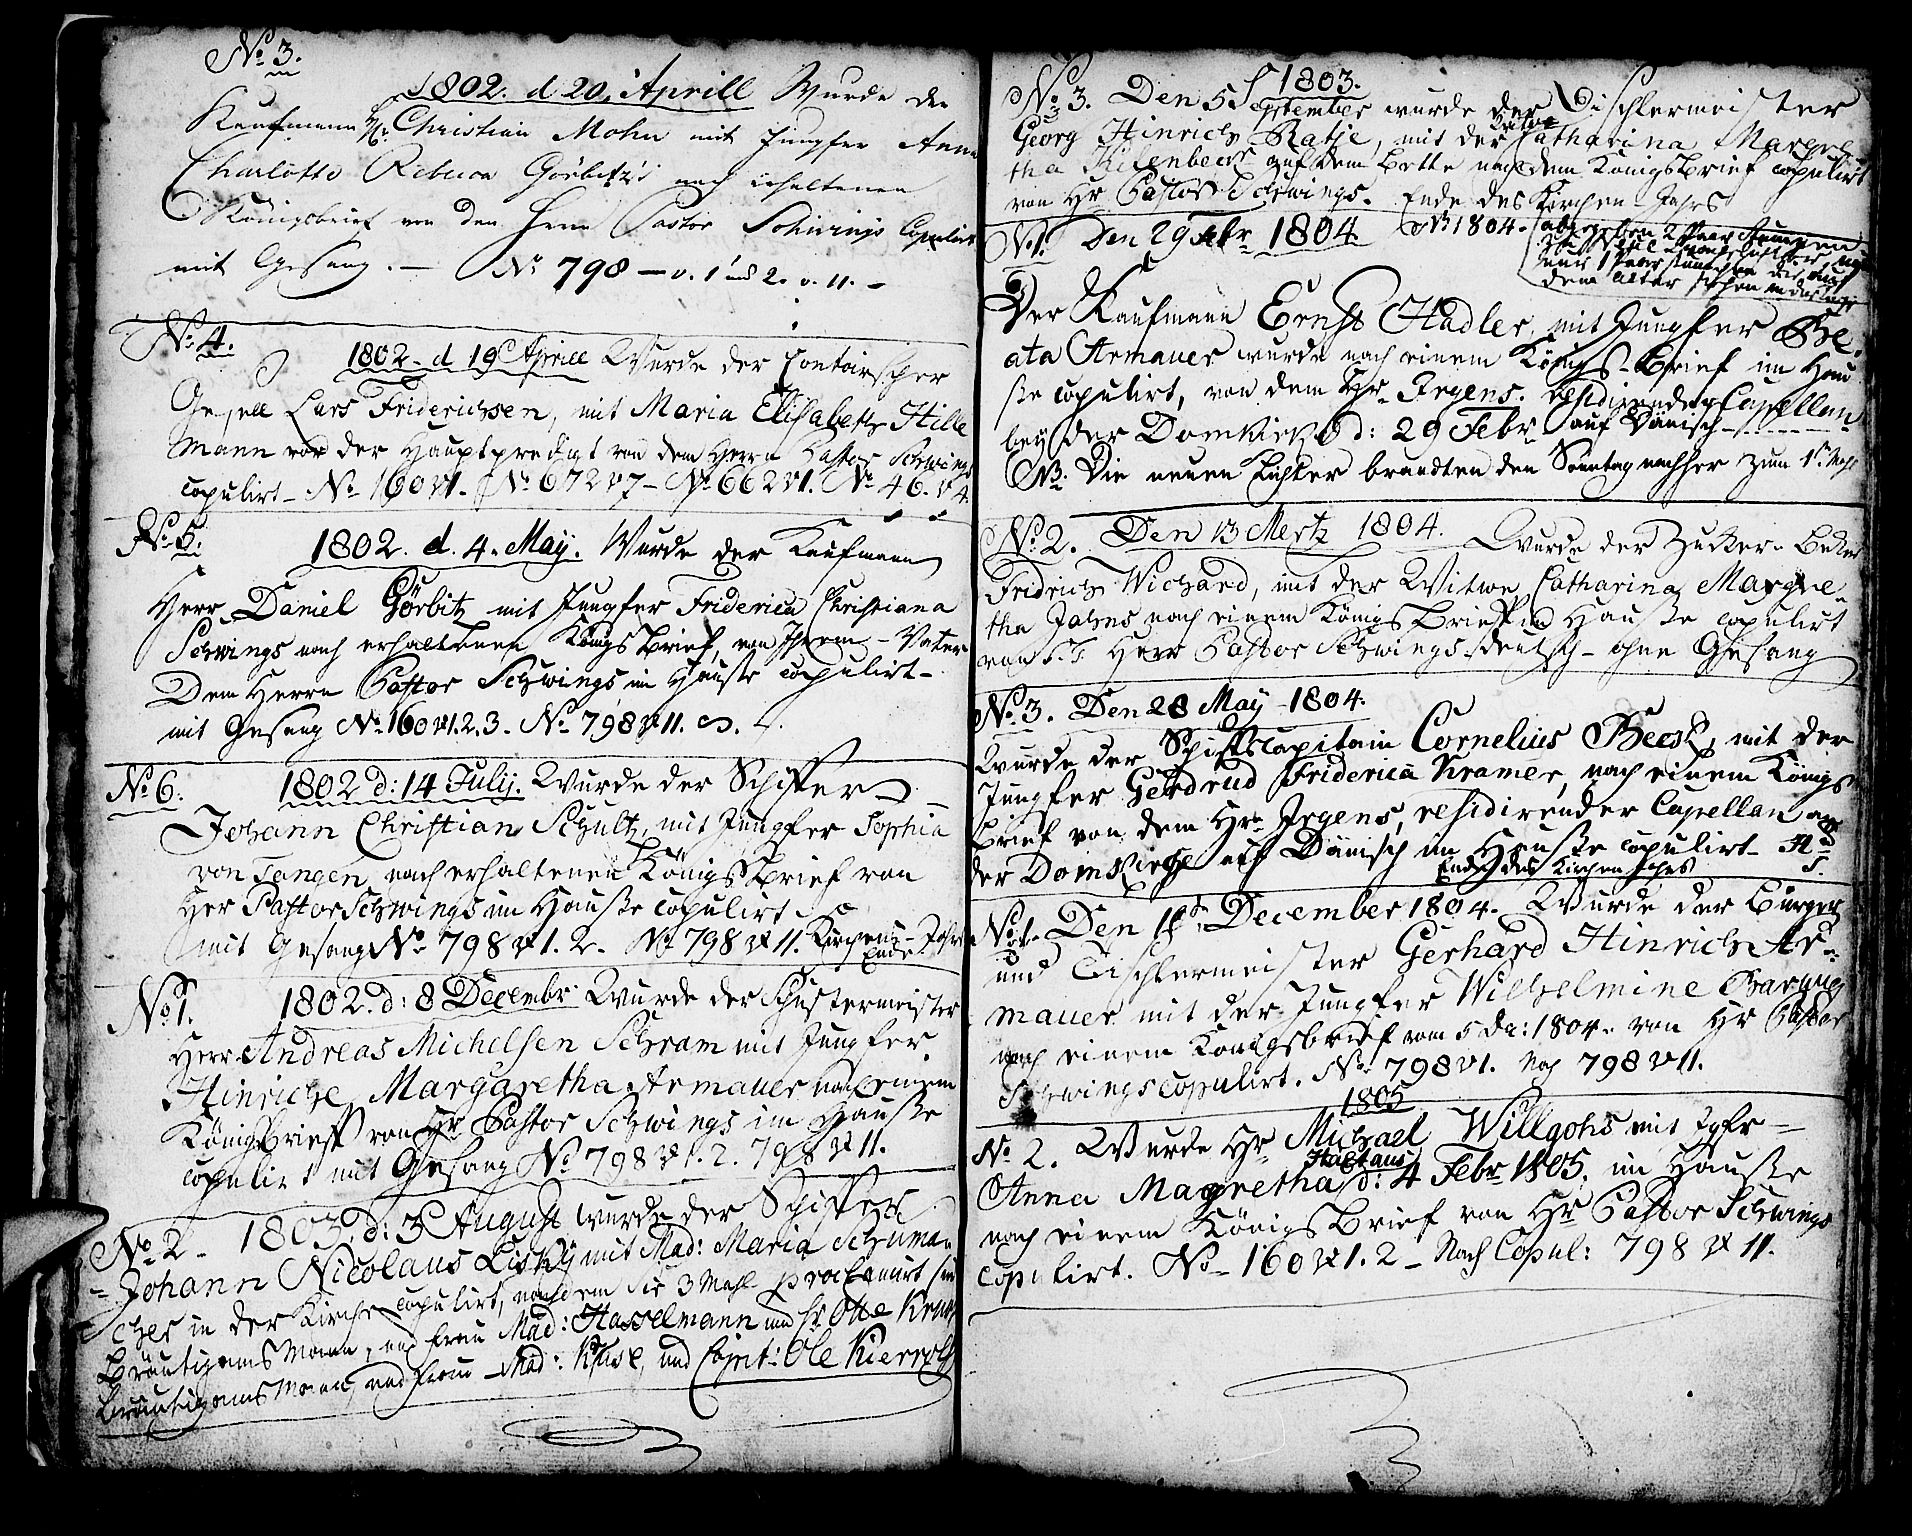 No 3.
1802. d 20. Aprill Wurde der
Kaufmann Hr. Christian Mohn mit Jungfer Anna
Charlotte Rebecca Görbitz nach erhaltenen
Königsbrief von den Herrn Pastor Schwings Copulirt
mit Gesang. — No 798 — v. 1 und 2. v. 11. —
No 4.
1802. d 19 Aprill Wurde der
Gesell Lars Friderichsen, mit Maria Elisabeth Hille
mann vor der Hauptpredigt von dem Herrn Pastor Schwings
copulirt — No 160 v 1. No 672 v 7 — No 662 v 1. No 46. v 4.
No 5.
1802. d. 4. May. Wurde der Kaufmann
Herr Daniel Görbitz mit Jungfer Friderica Christiana
Schwings nach erhaltenen Königs Brief, von Ihrem Vater
Dem Herrn Pastor Schwings im Hauße copulirt —
mit Gesang No 160 v 1. 2. 3. No 798 v 11.
No 6.
1802 d: 14 July. Wurde der Schiffer
Johann Christian Schultz, mit Jungfer Sophia
von Tangen, nach erhaltenen Königs Brief von
Her Pastor Schwings im Hauße copulirt
mit Gesang No 798 v 1. 2. No 798 v 11. Kirchen-Jahrs
Ende
No 1.
1802. d: 8 Decembr. Wurde der Schustermeister
Herr Andreas Michelsen Schram mit Jungfer
Hinriche Margaretha Armauer nach einem
Königs Brieff von Hr Pastor Schwings im Hauße
copulirt mit Gesang No 798 v 1. 2. 798 v 11.
No 2 — 1803. d: 3 August wurde der Schiffer
Johann Nicolaus Lisky mit Mad: Maria Schuma-
cher in der Kirche copulirt, nachdem Sie 3 Mahl proclamirt sind
Bräutigams Mann, und Frau Mad: Hasselmann und Hr. Otte Kruse
Bräutigams Mann, und Frau — Mad: Kruse, und Capt: Ole Kierrolf
1803.
No 3. Den 5 September wurde der Tischlermeister
Georg Hinrich Ratje, mit der Witwe Catharina Margre-
tha auf dem Bette nach dem Königs Brief copulirt
von Hr Pastor Schwings. Ende des Kirchen Jahrs
No 1. Den 29 Febr 1804. NB 1804.
abgegeben 2 Paar
dem Alter
Der Kaufmann Ernst Hadler, mit Jungfer Be-
ata Armauer wurde nach einem Königs-Brief im Hau
ße copulirt, von dem Hr. Irgens. residirender Capellan
bey der Domkirke d: 29 Febr auf Dänisch —
NB. Die neuen Lichter brandten den Sonntag nachher zum 1ten Mahl
No 2. Den 13 Mertz 1804. Wurde der Zucker-Becker
Fridrich Wichard, mit der Witwe Catharina Margre-
tha Jahns nach einem Königs Brieff im Hauße copulirt
von S. T. Herr Pastor Schwings deutsch — ohne Gesang
No 3. Den 28 May 1804.
Wurde der Schiffscapitain Cornelius Beesk, mit der
Jungfer Gerdrud Friderica Kramer, nach einem Königs
Brief von dem Hr. Irgens, residirender Capellan an
der Domkirche auf Dänisch im Hauße copulirt —
Ende des Kirchen Jahrs
No 1. Den 18 December 1804. Wurde der Bürger
und Tischlermeister Gerhard Hinrich Ar-
mauer mit der Jungfer Wilhelmine
nach einem Königsbrief vom 5 Dec: 1804. von Hr Pastor
Schwings copulirt. No 798 v 1. Nach 798 v 11.
1805
No 2. Wurde Hr Michael Willgohs mit Jgfr —
Anna Magretha Haltaus d: 4 Febr 1805. im Hauße
nach einem Königs Brief von Hr Pastor Schwings
copulirt. No 160 v 1. 2 — Nach Copul: 798 v 11.